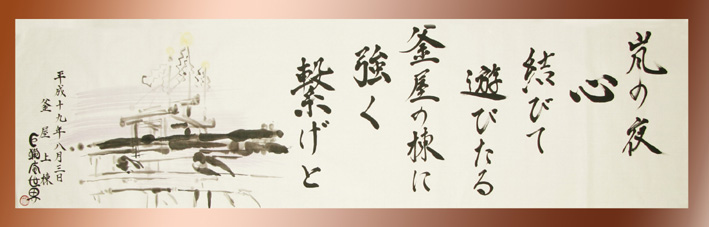 嵐の夜
心
結びて
遊びたる
釜屋の棟に
強く
繋げと
平成十九年八月三日
釜屋上棟